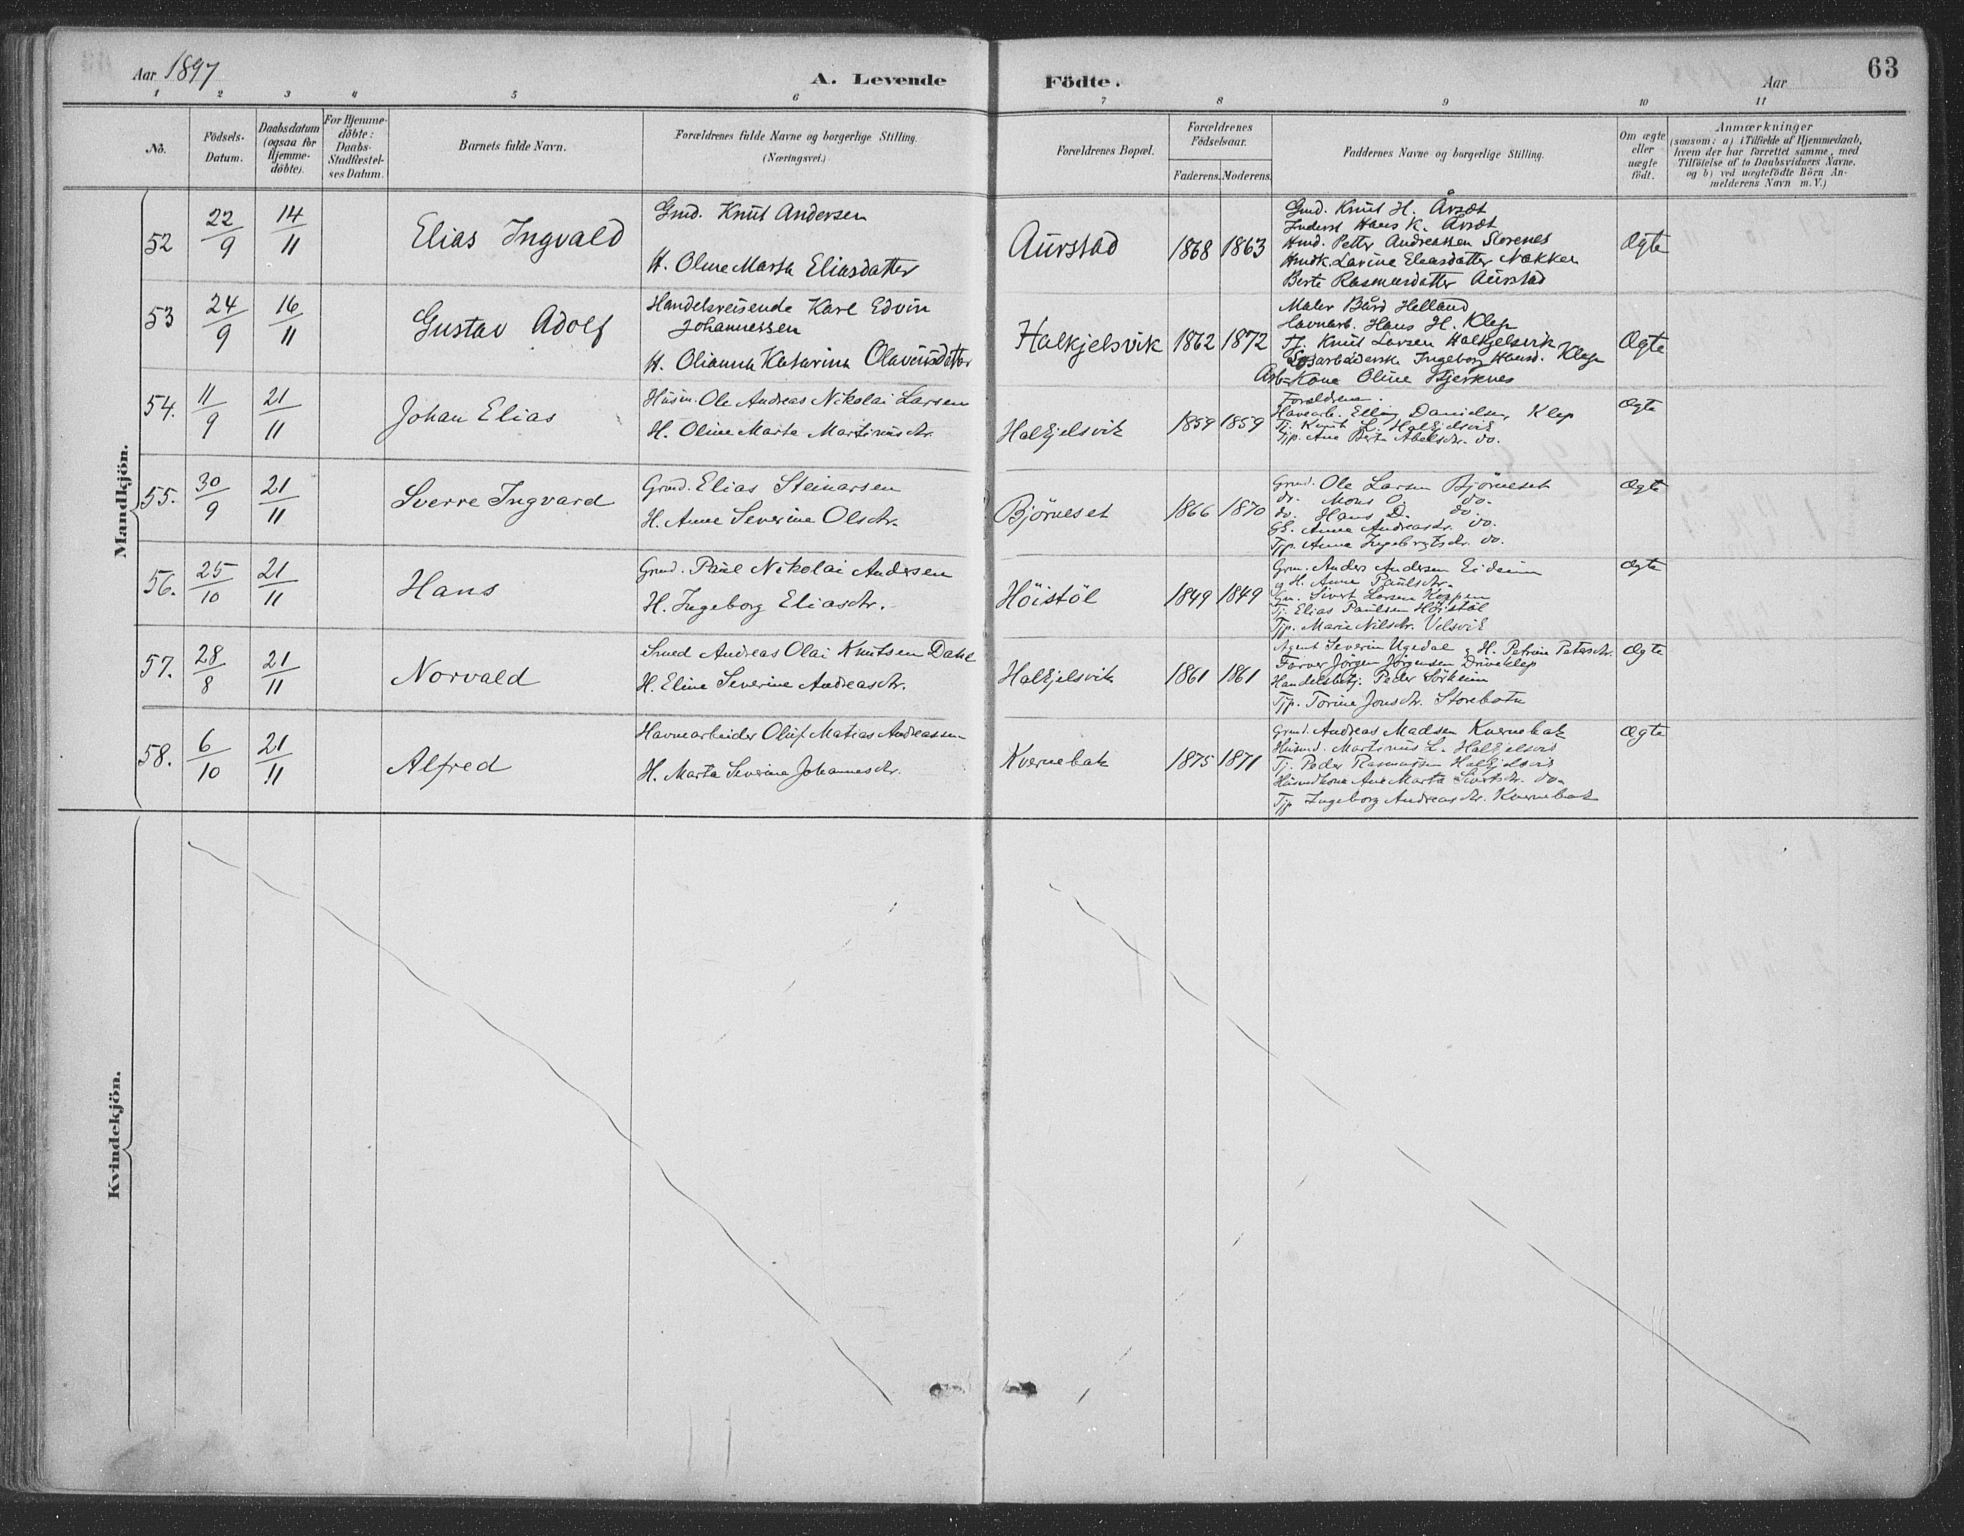 Aar 1897
A. Levende Födte.
Aar
63
1 2 3 4 5 6 7 8 9 10 11
No.
Födsels-Datum.
Daabsdatum (ogsaa for Hjemme-döbte).
For Hjemme-döbte: Daabs-Stadfæstel-ses Datum.
Barnets fulde Navn.
Forældrenes fulde Navne og borgerlige Stilling.
(Næringsvei.)
Forældrenes Bopæl.
Forældrenes Födselsaar.
Faderens. Moderens.
Faddernes Navne og borgerlige Stilling.
Om ægte eller uægte födt.
Anmærkninger
(saasom: a) i Tilfælde af Hjemmedaab, hvem der har forrettet samme, med Tilföielse af to Daabsvidners Navne, og b) ved uægtefödte Börn An-melderens Navn m. V.)
Mandkjön.
52 22/9 14/11 Elias Ingvald
Gmd. Knut Andersen
H. Oline Marta Eliasdatter
Aurstad 1868 1863
Gmd. Knut H. Årsæt
Inderst Hans K. Årsæt
Hmd. Petter Andreassen
Hmdk. Lavine Eliasdatter Nakken
Berte Rasmusdatter Aurstad
Ægte
53 24/9 16/11 Gustav Adolf
Handelsreisende Karl Edvin
Johannessen
H. Olianna Katarina Olavusdatter
Halkjelsvik 1862 1872
Maler Bård Helland
Havnarb. Hans H. Klep
Tj. Knut Larsen Halkjelsvik
Ingeborg Hansd. Klep
Arb-Kone Oline Bjerknes
Ægte
54. 11/9 21/11 Johan Elias
Husm. Ole Andreas Nikolai Larsen
H. Oline Marte Martinusdtr.
Halkjelsvik 1859 1859
Forældrene.
Havearb. Elling Danielsen Klep
Tj. Knut L. Halkjelsvik
Tjp. Ane Berte Abelsdtr. do.
Ægte
55. 30/9 21/11 Sverre Ingvard
Grmd. Elias Steinarsen
H. Anne Severine Olsdtr.
Björneset 1866 1870
Grmd. Ole Larsen Björneset
do. Mons O. do.
do. Hans D. do.
Gk. Anne Andreasdtr. do.
Tjp. Anne Ingebrigtsdtr. do.
Ægte
56. 25/10 21/11 Hans
Grmd. Paul Nikolai Andersen
H. Ingeborg Eliasdtr.
Höistöl 1849 1849
Grm. Anders Andersen Eideim
og H. Anne Paulsdtr.
Gm. Sivert Larsen Koppen
Tj. Elias Paulsen Höistöl
Tjp. Marie Nilsdtr. Velsvik
Ægte
57. 28/8 21/11 Norvald
Smed Andreas Olai Knutsen Dahl
H. Eline Severine Andreasdtr.
Halkjelsvik 1861 1861
Agent Severin Ugedal og H. Petrine Petersdtr.
Farver Jörgen Jörgensen Driveklep
Handelsbetj. Peder Sörheim
Tjp. Torine Jonsdtr. Storebotn
Ægte
58. 6/10 21/11 Alfred
Havnearbeider Oluf Matias Andreassen
H. Marta Severine Johannesdtr.
Kvernebak 1875 1871
Grmd. Andreas Madsen Kvernebak
Husmd. Martinus L. Halkjelsvik
Tj. Peder Rasmussen Halkjelsvik
Husmdkone Ane Marta Sivertsdtr. do.
Tjp. Ingeborg Andreasdtr. Kvernebak
Ægte
Kvindekjön.